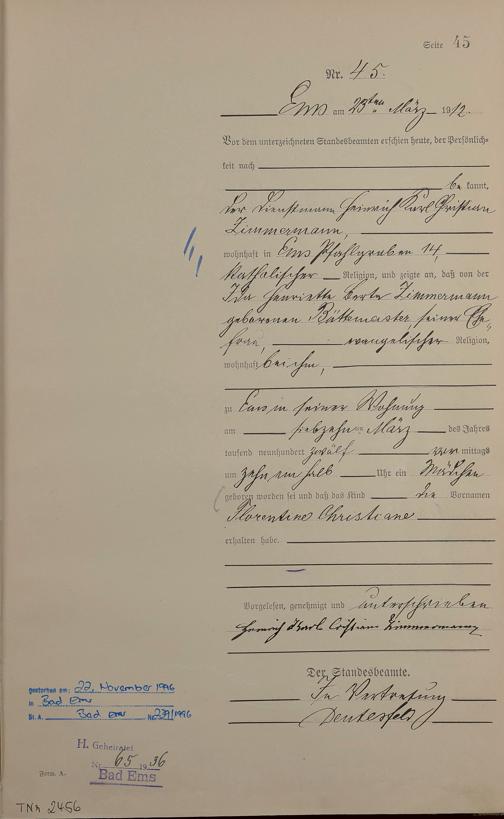 Seite 45
Nr. 45.
Ems am 23ten März 1912.
Vor dem unterzeichneten Standesbeamten erschien heute, der Persönlich-
keit nach
be kannt,
der Dienstmann Heinrich Karl Christian
Zimmermann,
wohnhaft in Ems Pfahlgraben 14,
katholischer Religion, und zeigte an, daß von der
Ida Henriette Berta Zimmermann
geborenen seiner Ehe-
frau, evangelischer Religion,
wohnhaft bei ihm,
zu Ems in seiner Wohnung
am siebzehn März des Jahres
tausend neunhundert zwölf vor mittags
um zehn ein halb Uhr ein Mädchen
geboren worden sei und daß das Kind die Vornamen
Florentine Christiane
erhalten habe.
Vorgelesen, genehmigt und unterschrieben
Heinrich Karl Cristian Zimmermann
Der Standesbeamte.
In Vertretung
gestorben am: 22. November 1996
in Bad Ems
St. A. Bad Ems Nr. 239/1996
H. Geheiratet
Nr. 65 1936
Bad Ems
Form. A.
TNr 2456